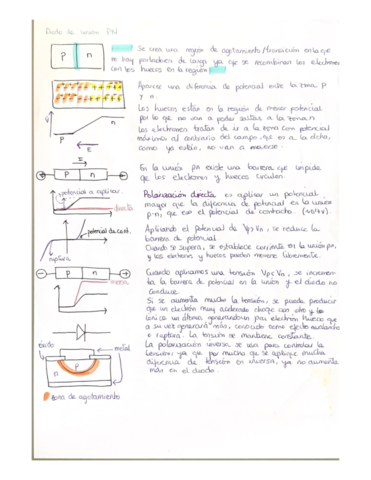 Diodo de unión PN
Se crea una región de agotamiento/transición en la que
no hay portadores de carga ya que se recombinan los electrones
con los huecos en la región
P
n
Aparece una diferencia de potencial entre la zona P
y n.
P
n
E
Los huecos están en la región de menor potencial
por lo que no van a poder saltar a la zona n
Los electrones tratan de ir a la zona con potencial
máximo al contrario del campo, que es a la dcha,
como ya están, no van a moverse.
E
P
n
En la unión pn existe una barrera que impide
que los electrones y huecos circulen.
potencial a aplicar.
directa
Polarización directa es aplicar un potencial
mayor que la diferencia de potencial es la unión
p-n, que es el potencial de contacto.
potencial de cont.
ruptura
Aplicando el potencial de Vp>Vn, se reduce la
barrera de potencial
Cuando se supera, se establece corriente en la unión pn,
y los electrones y huecos pueden moverse libremente.
P
n
inversa
Cuando aplicamos una tensión Vp<Vn, se incremen-
ta la barrera de potencial en la unión y el diodo no
conduce.
Si se aumenta mucho la tensión, se puede producir
que un electrón muy acelerado choque con otro y lo
ionice un átomo generando un par electrón hueco que
a su vez generará más, conocido como efecto avalancha
o ruptura. La tensión se mantiene constante.
La polarización inversa, se usa para controlar la
tensión ya que por mucho que se aplique mucha
diferencia de tensión en inversa, ya no aumenta
más en el diodo.
óxido
metal
P
n
zona de agotamiento